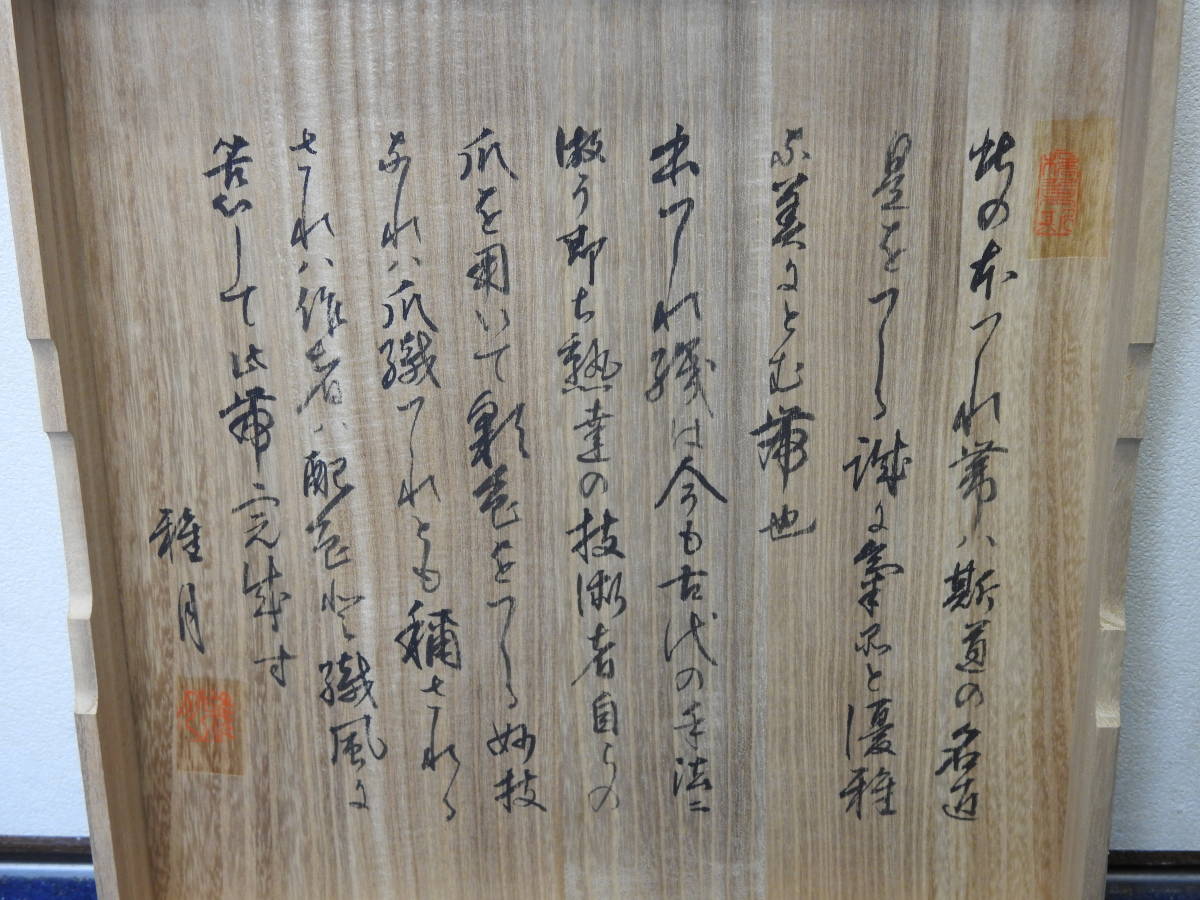 此の本つゝれ帯ハ斯道の名匠
是をつくる誠に氣品と優雅
な美にとむ帯也
本つゝれ織は今も古代の手法ニ
倣う即ち熟達の技術者自らの
爪を用いて彩色をつくる妙技
なれハ爪織つゝれとも稱される
されハ作者ハ配色と織風に
苦心して此帯完成す
雅月